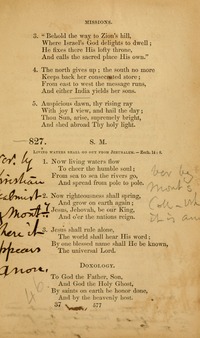 MISSIONS.
3. "Behold the way to Zion's hill,
Where Israel's God delights to dwell;
He fixes there His lofty throne,
And calls the sacred place His own."
4. The north gives up; the south no more
Keeps back her consecrated store;
From east to west the message runs,
And either India yields her sons.
5. Auspicious dawn, thy rising ray
With joy I view, and hail the day;
Thou Sun, arise, supremely bright,
And shed abroad Thy holy light.
827. S. M.
LIVING WATERS SHALL GO OUT FROM JERUSALEM.—Zech. 14:8.
1. Now living waters flow
To cheer the humble soul;
From sea to sea the rivers go,
And spread from pole to pole.
2. Now righteousness shall spring,
And grow on earth again;
Jesus, Jehovah, be our King,
And o'er the nations reign.
3. Jesus shall rule alone,
The world shall hear His word;
By one blessed name shall He be known,
The universal Lord.
DOXOLOGY.
To God the Father, Son,
And God the Holy Ghost,
By saints on earth be honor done,
And by the heavenly host.
37 577
by
ristian
here it
ppears
anon.